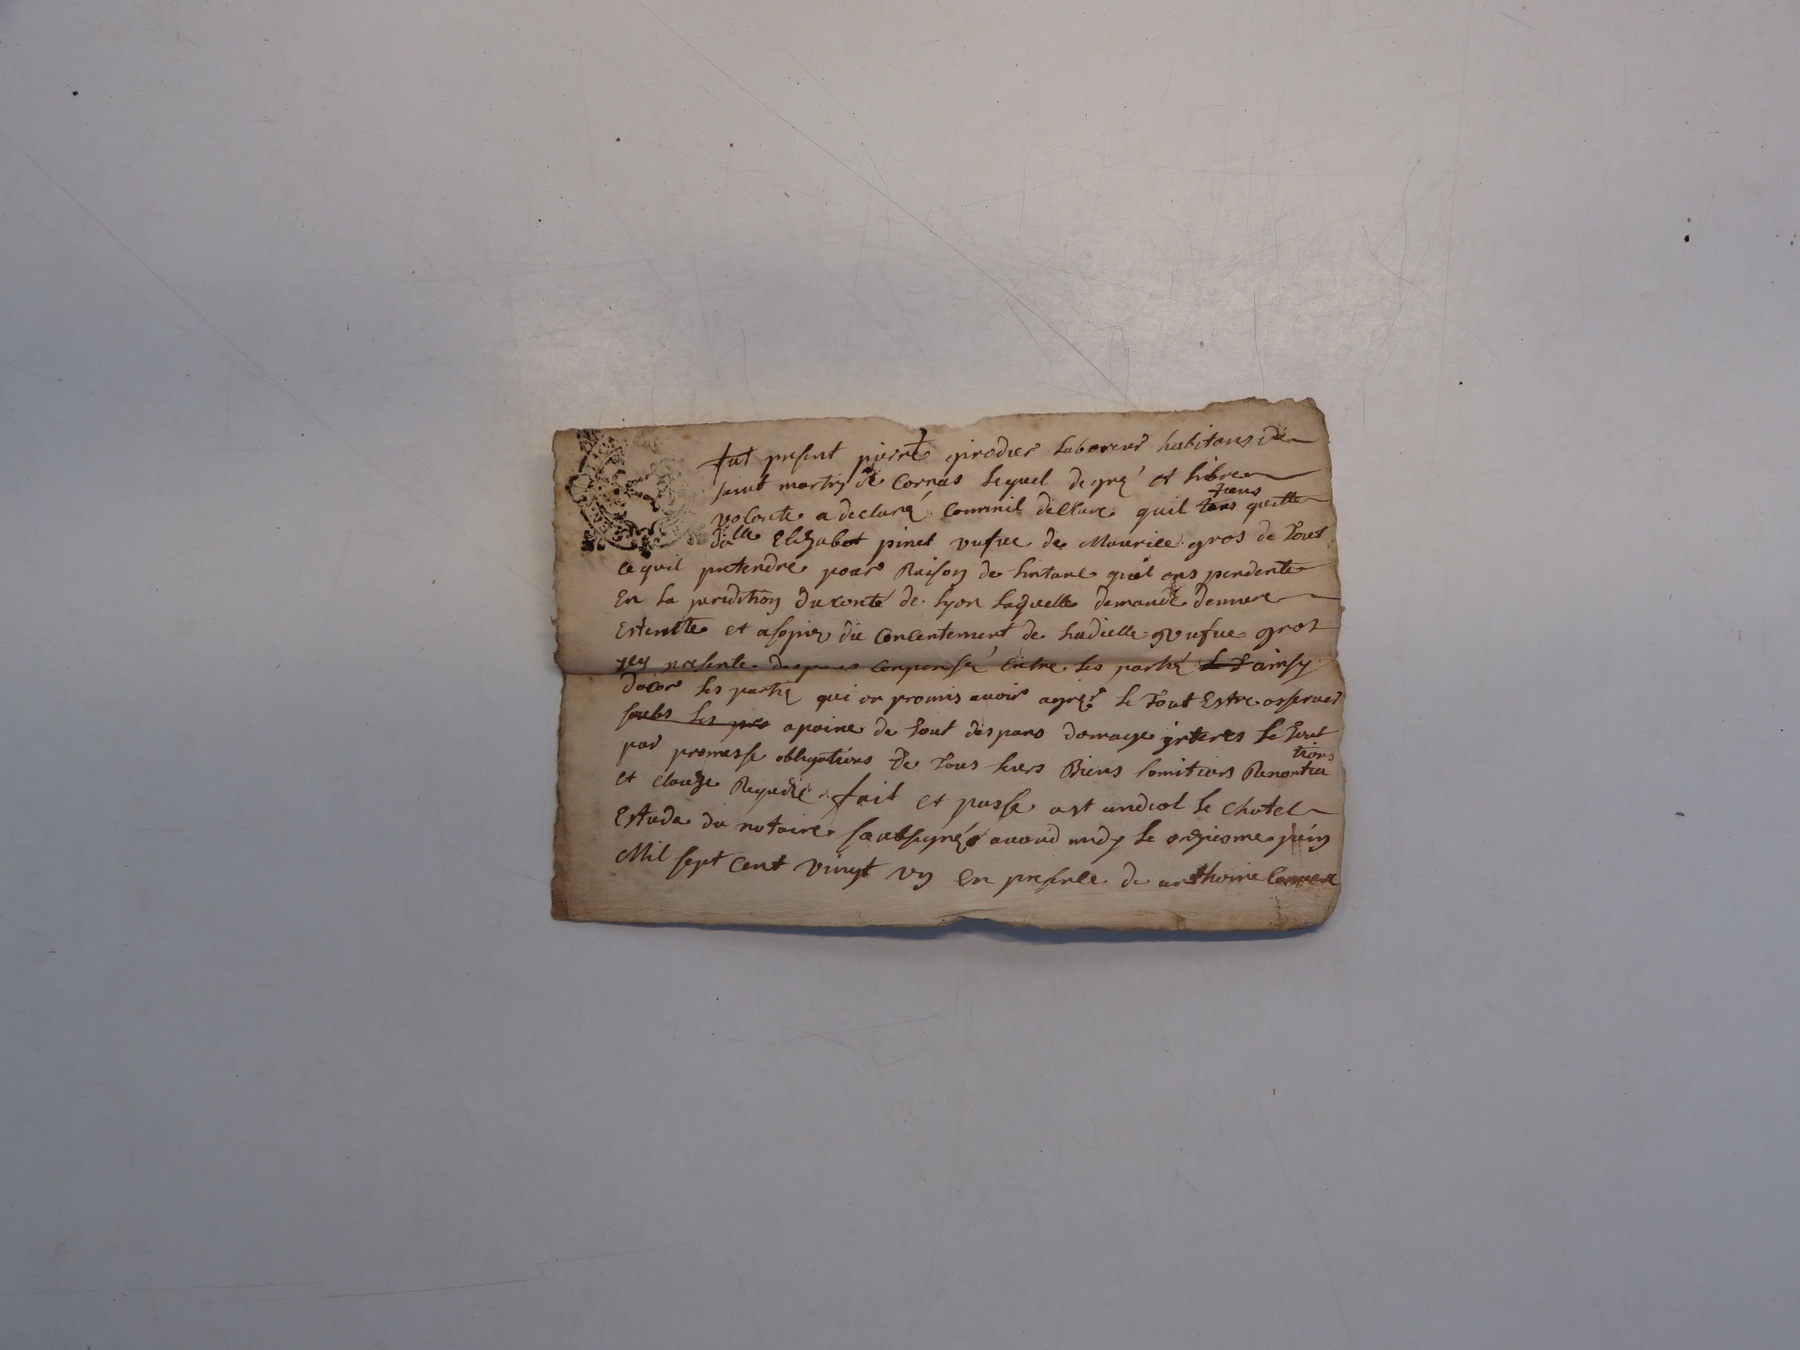 fut present pierre girodier laboreur habitans de
saint martin de Cornas lequel de gré et libre
volonte a declaré comm'il desClare quil tiens quitte
dlle Elizabet pinet vefve de Maurice gros de tout
ce quil pretendre pour Raison de lintance quil ons pendente
En la juridition du conté de lyon laquelle demande demure
Esteintte et asopie du Consentement de ladiette vefve gros
icy presente despans compensé entre les partie ainsy
dacor les partie qui on promis avoir agreé le tout Estre osserver
soubs les pnes apaine de tout despans domage interes le tout
par promesse obligations de tous leurs Biens somitions Renontiations
et clauze Requise fait et passe a st andeol le chatel
Estude du notaire soubsigné avand midy le onziesme juin
Mil sept cent vingt un En presence de anthoine